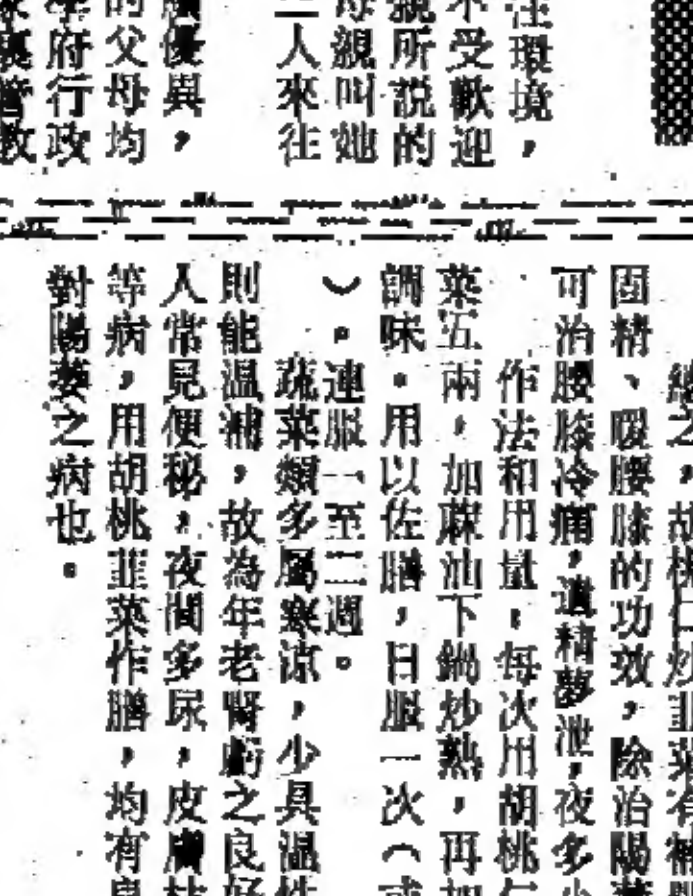 汪環境，
不受歡迎
親所説的
母親叫她
二人來往
優異，
的父母均
府行政
教
總之，胡桃仁炒韭菜有補
固精、暖腰膝的功效，除治陽萎
可治腰膝冷痛，遺精夢泄，夜多小
作法和用量：每次用胡桃仁
菜五兩，加蔴油下鍋炒熟，再加
調味。用以佐膳，日服一次（或
）。連服一至二週。
蔬菜類多屬寒涼，少具溫性
則能溫補，故為年老腎虧之良好
人常見便秘，夜間多尿，皮膚枯
等病，用胡桃韭菜作膳，均有良
對陽萎之病也。